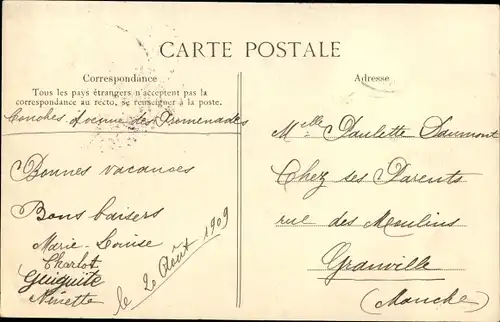 CARTE POSTALE
Correspondance
Tous les pays étrangers n'acceptent pas la
correspondance au recto, se renseigner à la poste.
Conches. Avenue des Promenades
Bonnes vacances
Bons baisers
Marie-Louise
Charlot
Guiguite
Ninette
le 2 Août 1909
Adresse
Melle Paulette Daumont
Chez ses Parents
rue des Moulins
Granville
(Manche)